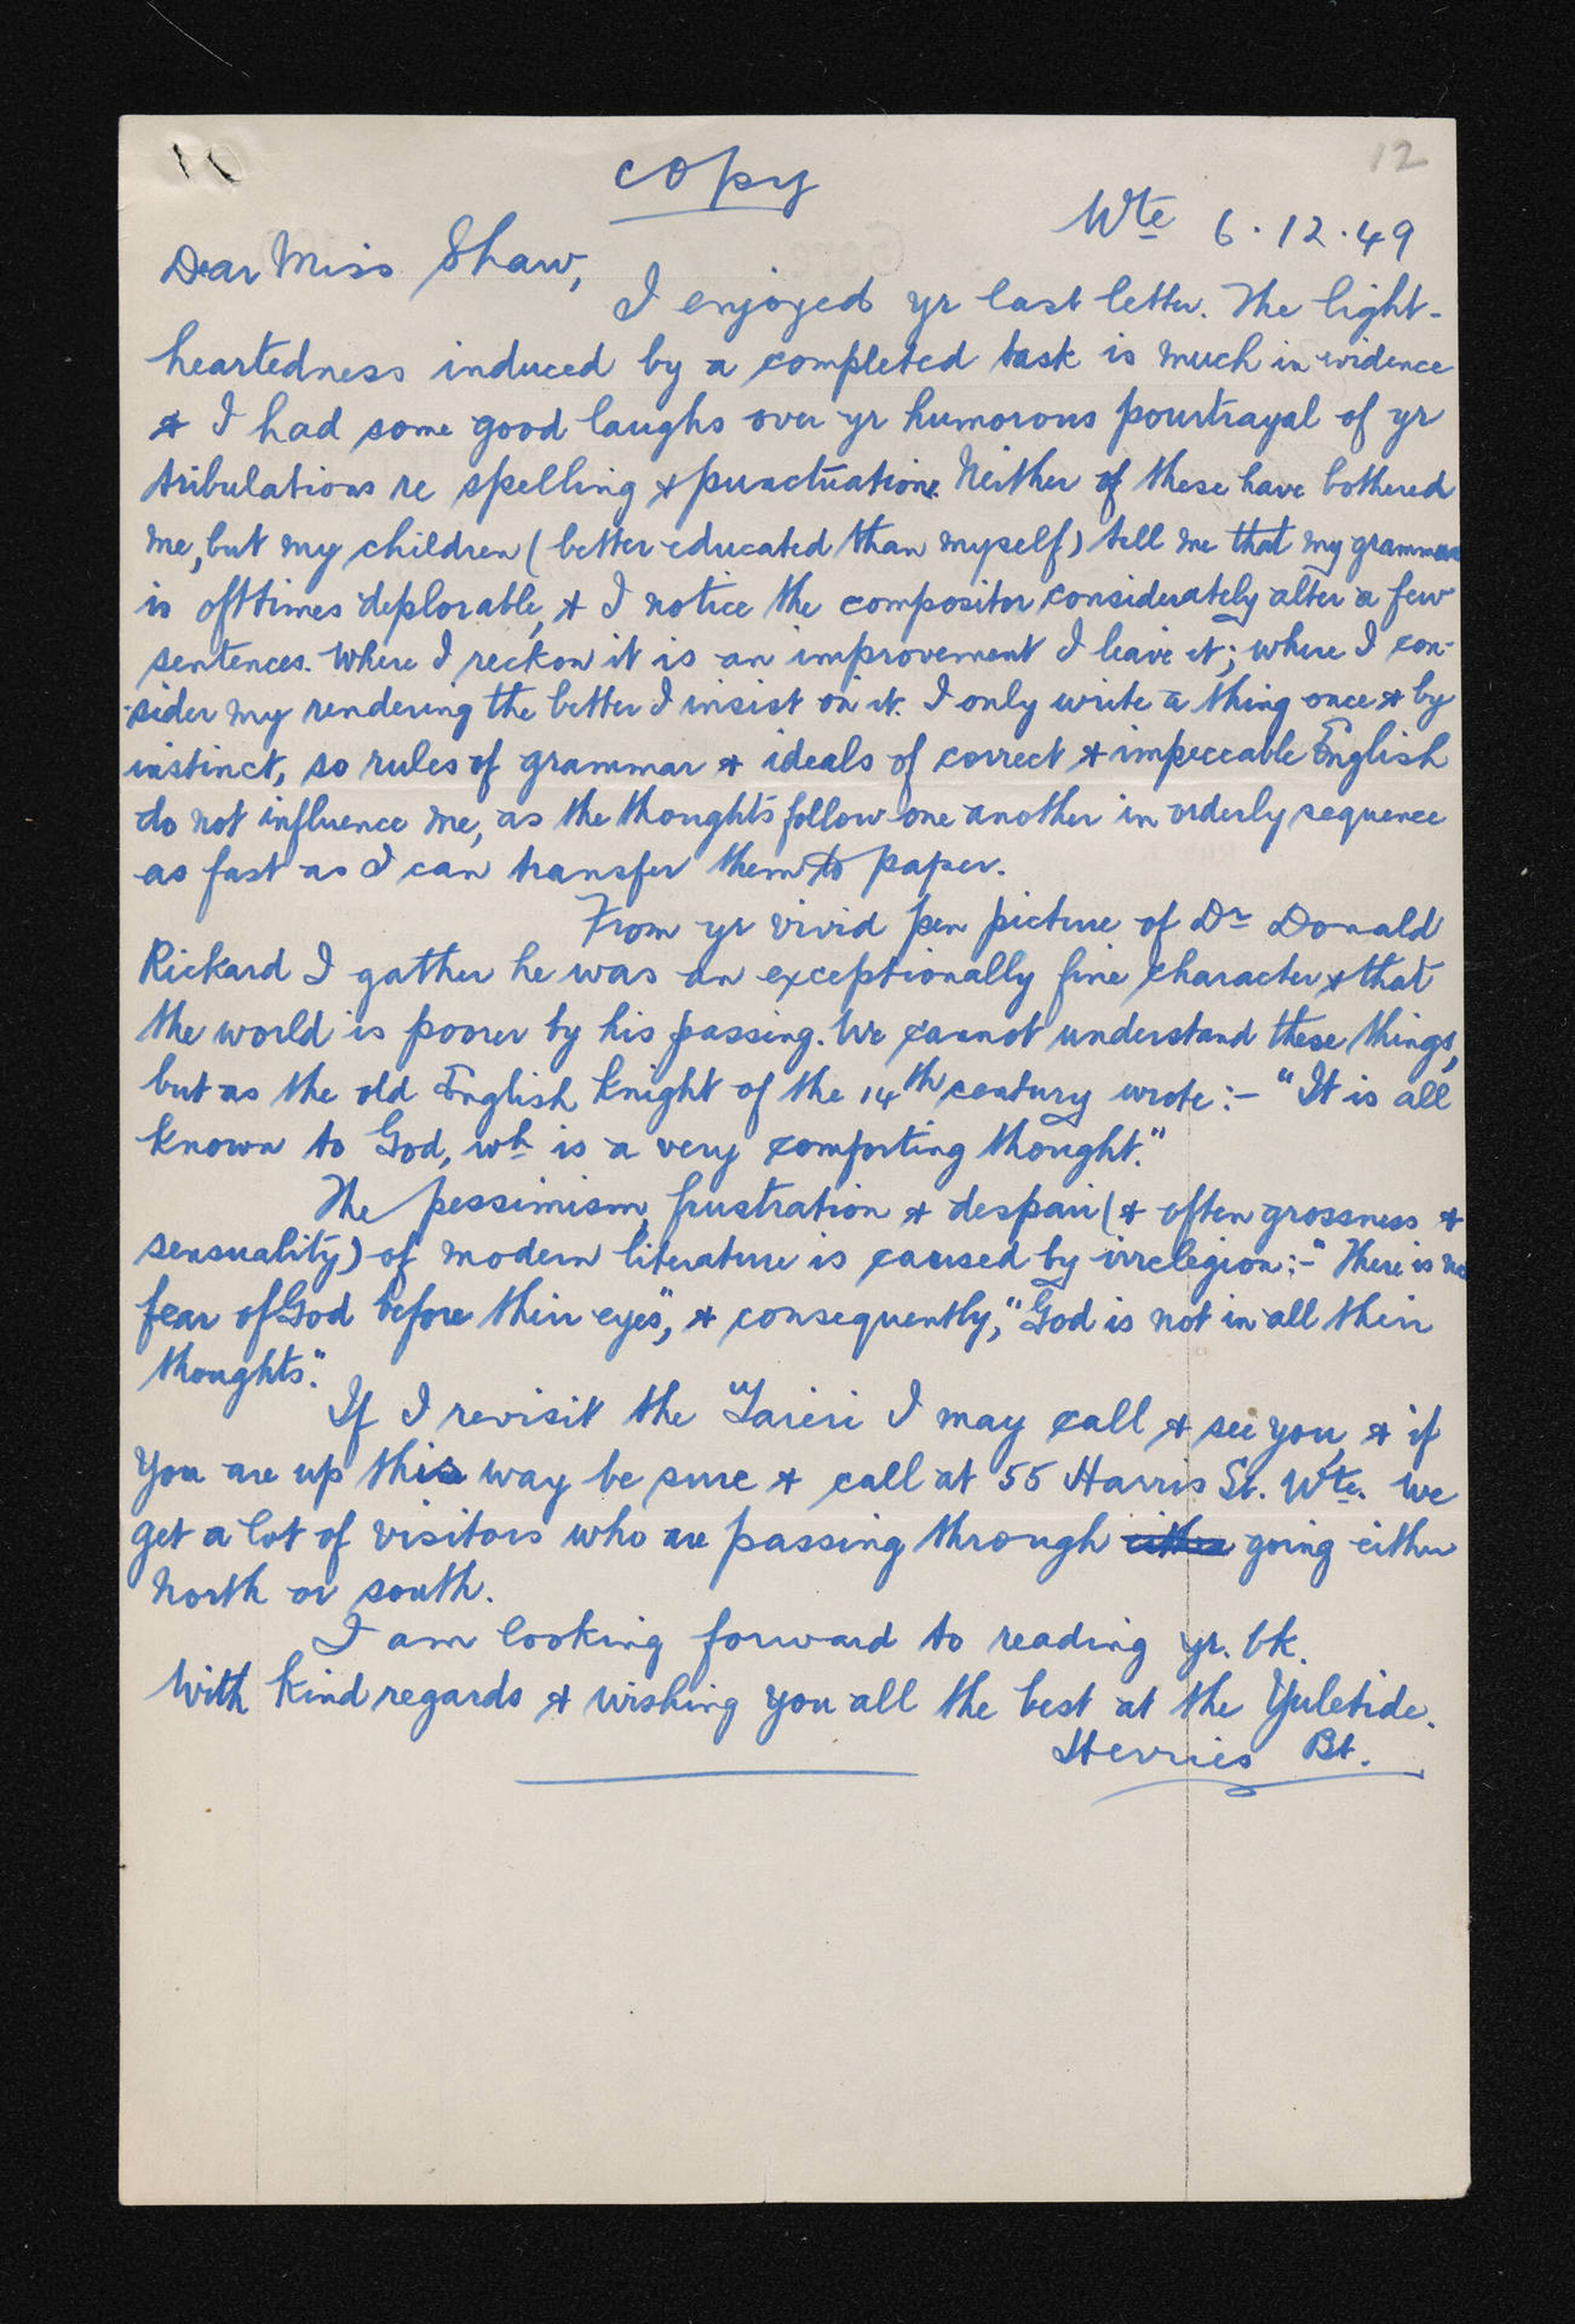 12
copy
Wte 6.12.49
Dear Miss Shaw,
I enjoyed yr last letter. The light-
heartedness induced by a completed task is much in evidence
& I had some good laughs over yr humorous pourtrayal of yr
tribulations re spelling & punctuation. Neither of these have bothered
me, but my children (better educated than myself) tell me that my grammar
is ofttimes deplorable, & I notice the compositor considerately alter a few
sentences. Where I reckon it is an improvement I leave it; where I con-
-sider my rendering the better I insist on it. I only write a thing once & by
instinct, so rules of grammar & ideals of correct & impeccable English
do not influence me, as the thoughts follow one another in orderly sequence
as fast as I can transfer them to paper.
From yr vivid pen picture of Dr Donald
Rickard I gather he was an exceptionally fine character & that
the world is poorer by his passing. We cannot understand these things,
but as the old English knight of the 14th century wrote:- "It is all
known to God, wh is a very comforting thought."
The pessimism, frustration & despair (& often grossness &
sensuality) of modern literature is caused by irrelegion:- "There is no
fear of God before their eyes", & consequently, "God is not in all their
thoughts."
If I revisit the Taieri I may call & see you, & if
you are up this way be sure & call at 55 Harris St. Wte. We
get a lot of visitors who are passing through either going either
north or south.
I am looking forward to reading yr. bk.
With kind regards & wishing you all the best at the Yuletide.
Herries Bt.